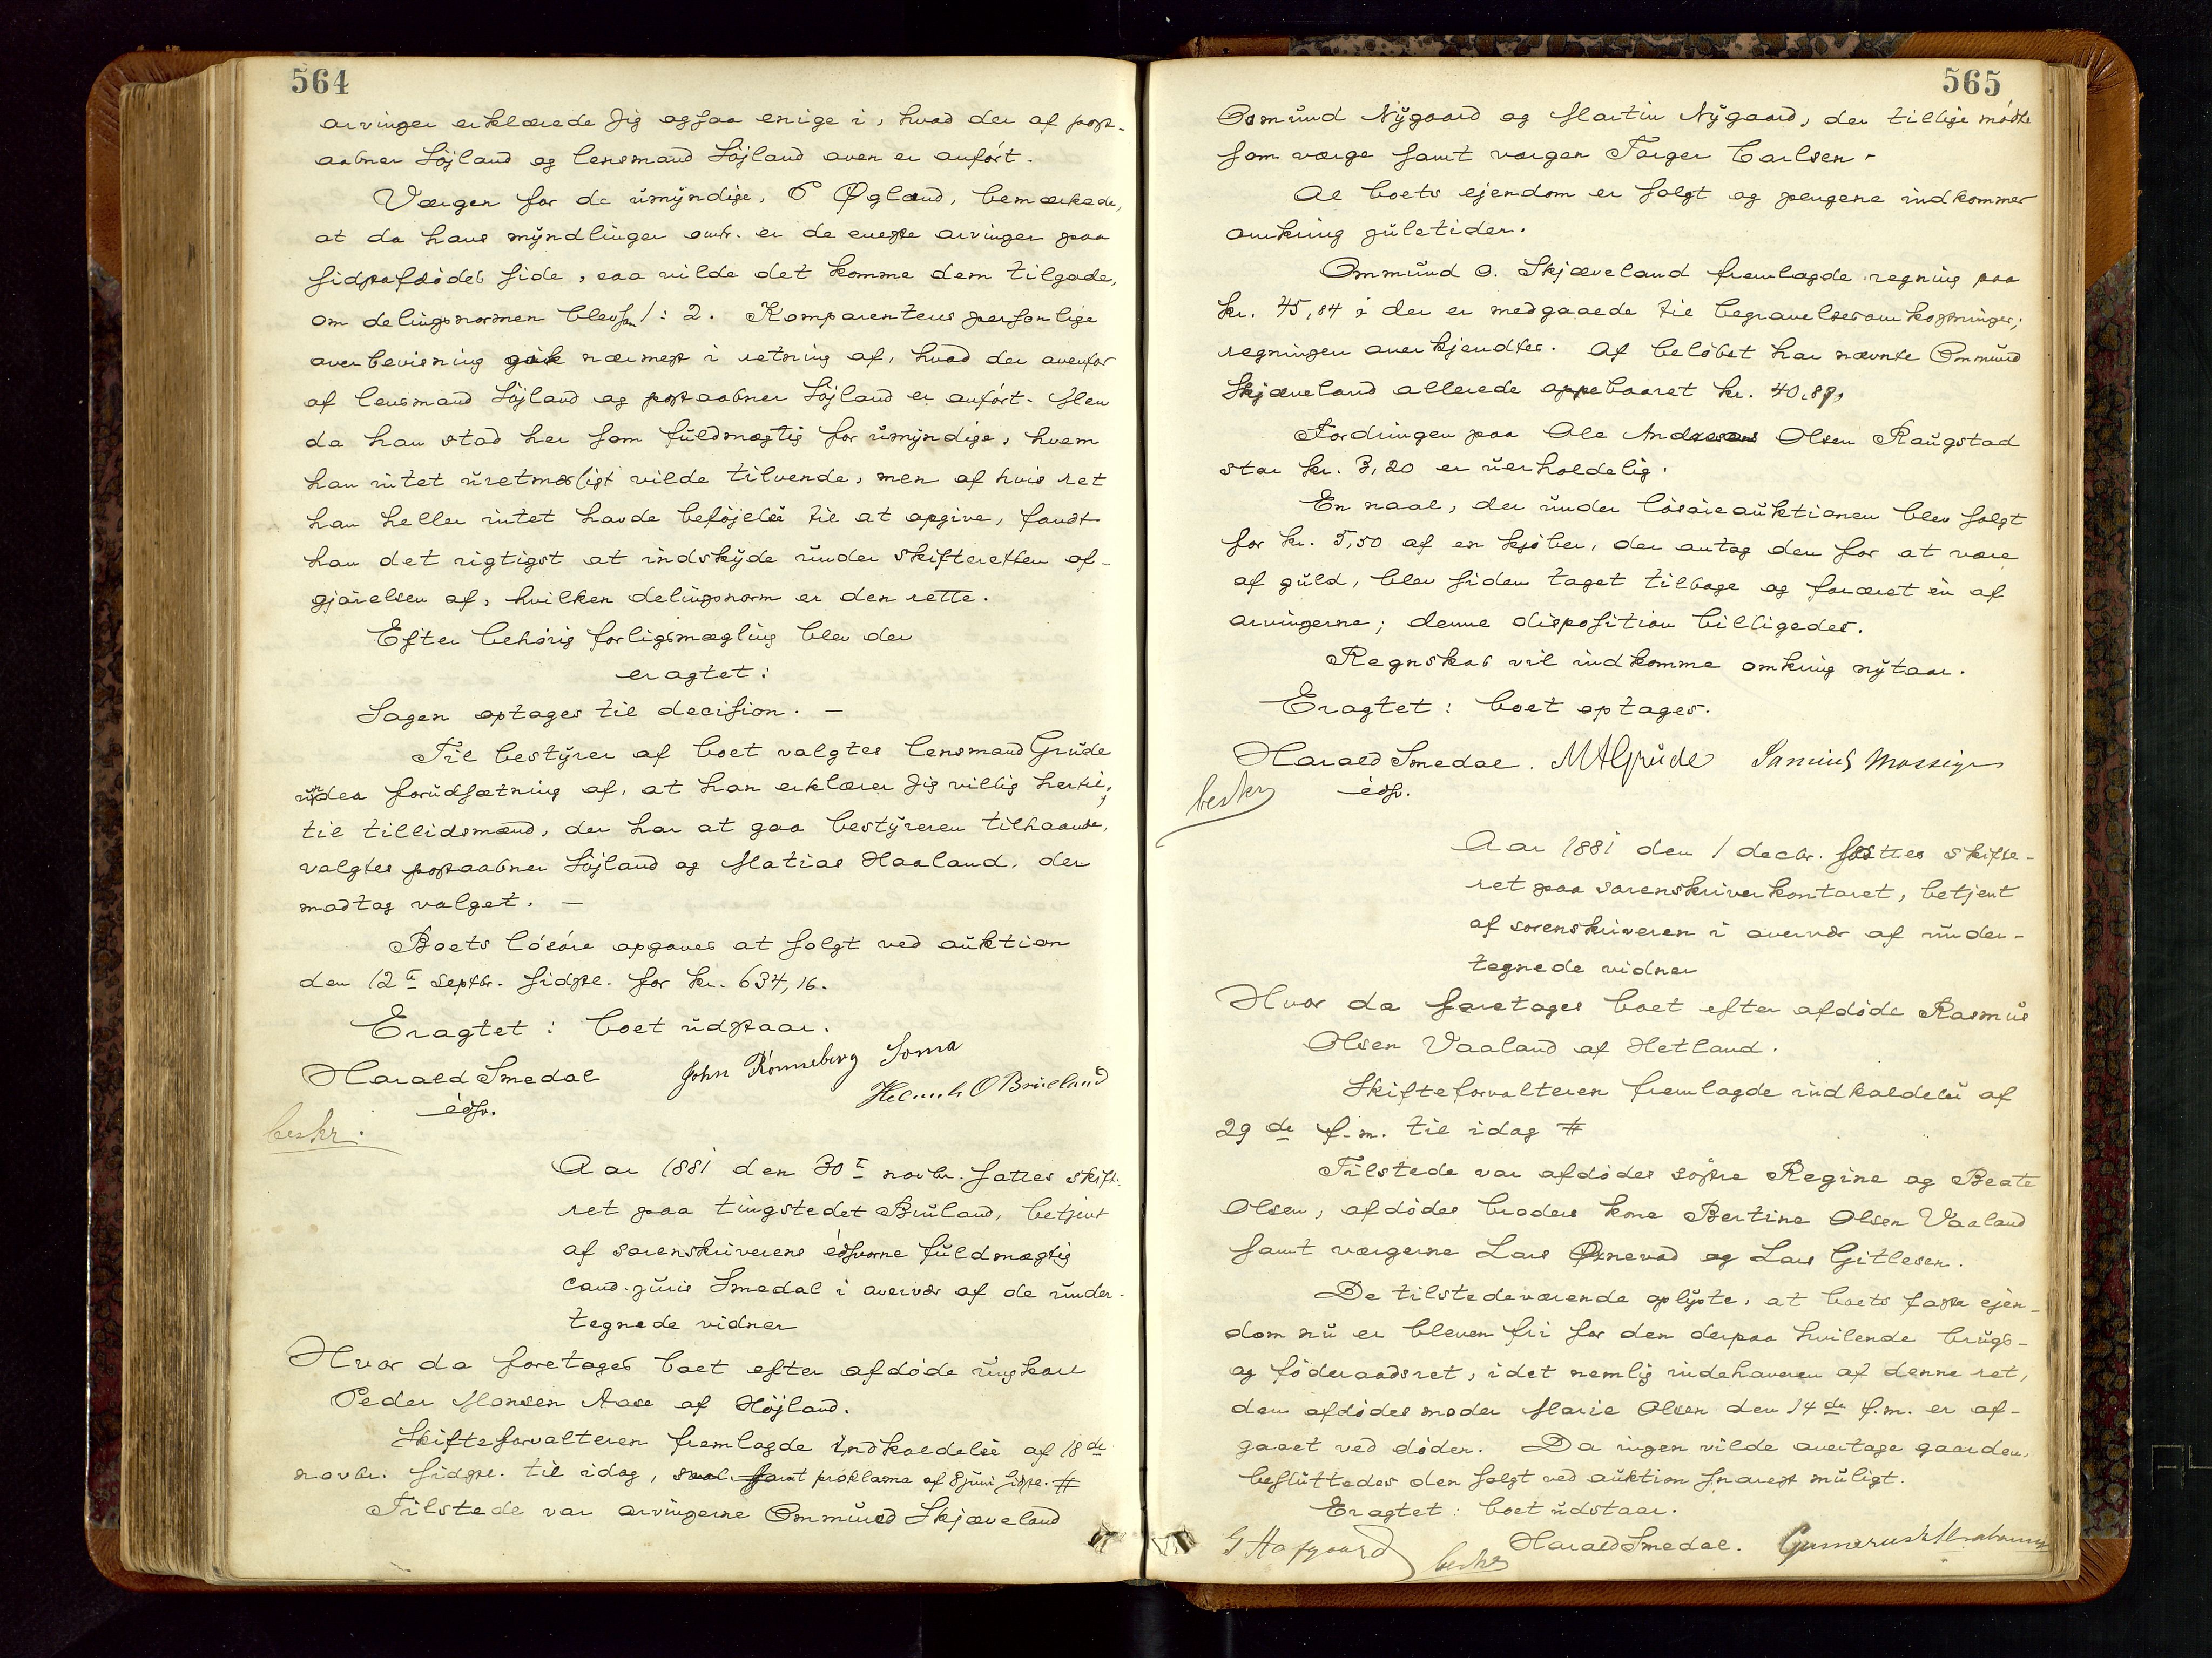 564
arvinger erklærede sig ogsaa enige i, hvad der af post-
aabner Höjland og lensmand Höjland oven er anfört.
Værgen for de umyndige, P Øgland, bemærkede,
at da hans myndlinger omh. er de eneste arvinger paa
sidstafdödes side, saa vilde det komme dem tilgode,
om delingsnormen blev 1:2. Komparentens personlige
overbevisning gik nærmest i retning af, hvad der ovenfor
af lensmand Höjland og postaabner Höjland er anfört. Men
da han stod her som fuldmægtig for umyndige, hvem
han intet uretmæsligt vilde tilvende, men af hvis ret
han heller intet havde beföjelse til at opgive, fandt
han det rigtigst at indskyde under skifteretten af-
gjörelsen af, hvilken delingsnorm er den rette.
Efter behörig forligsmægling blev der
eragtet:
Sagen optages til decision. —
Til bestyrer af boet valgtes lensmand Grude
under forudsætning af, at han erklærer sig villig hertil;
til tillidsmænd, der har at gaa bestyreren tilhaande,
valgtes postaabner Höjland og Matias Haaland, der
modtog valget. —
Boets lösöre opgaves at solgt ved auktion
den 12te septbr. sidste. for kr. 634,16.
Eragtet: boet udstaar.
Harald Smedal John Rönneberg Soma
edsv. O Brueland
beskr.
Aar 1881 den 30te novbr. sattes skift-
ret paa tingstedet Bruland, betjent
af sorenskriverens edsvorne fuldmægtig
cand. juris Smedal i overvær af de under-
tegnede vidner
Hvor da foretages boet efter afdöde ungkarl
Peder Monsen Aase af Höjland.
Skifteforvalteren fremlagde indkaldelse af 18de
novbr. sidste. til idag, samt proklama af 8 juni sidste. #
Tilstede var arvingerne Ommund Skjæveland
565
Osmund Nygaard og Martin Nygaard, der tillige mödte
som værge samt værgen Torger Carlsen.
Al boets ejendom er solgt og pengene indkommer
omkring juletider.
Ommund O. Skjæveland fremlagde regning paa
kr. 45,84 i der er medgaaede til begravelsesomkostninger;
regningen anerkjendtes. Af belöbet har nævnte Ommund
Skjæveland allerede oppebaaret kr. 40,89.
Fordringen paa Ole Andreas Olsen Raugstad
stor kr. 3,20 er uerholdelig.
En naal, der under lösöreauktionen blev solgt
for kr. 5,50 af en kjöber, der antog den for at være
af guld, blev siden taget tilbage og foræret en af
arvingerne; denne disposition billigedes.
Regnskab vil indkomme omkring nytaar.
Eragtet: boet optages.
Harald Smedal. MAGrude
edsv.
beskr
Aar 1881 den 1 decbr. sattes skifte-
ret paa sorenskriverkontoret, betjent
af sorenskriveren i overvær af under-
tegnede vidner
Hvor da foretages boet efter afdöde Rasmus
Olsen Vaaland af Hetland.
Skifteforvalteren fremlagde indkaldelse af
29de f.m. til idag #
Tilstede var afdödes söstre Regine og Beate
Olsen, afdödes broders kone Bertine Olsen Vaaland
samt værgerne Lars Ørnevad og Lars Gitlesen.
De tilstedeværende oplyste, at boets faste ejen-
dom nu er bleven fri for den derpaa hvilende brugs-
og föderaadsret, idet nemlig indehaveren af denne ret,
den afdödes moder Marie Olsen den 14de f.m. er af-
gaaet ved döden. Da ingen vilde overtage gaarden,
besluttedes den solgt ved auktion snarest muligt.
Eragtet: boet udstaar.
G Hofgaard beskr Harald Smedal.